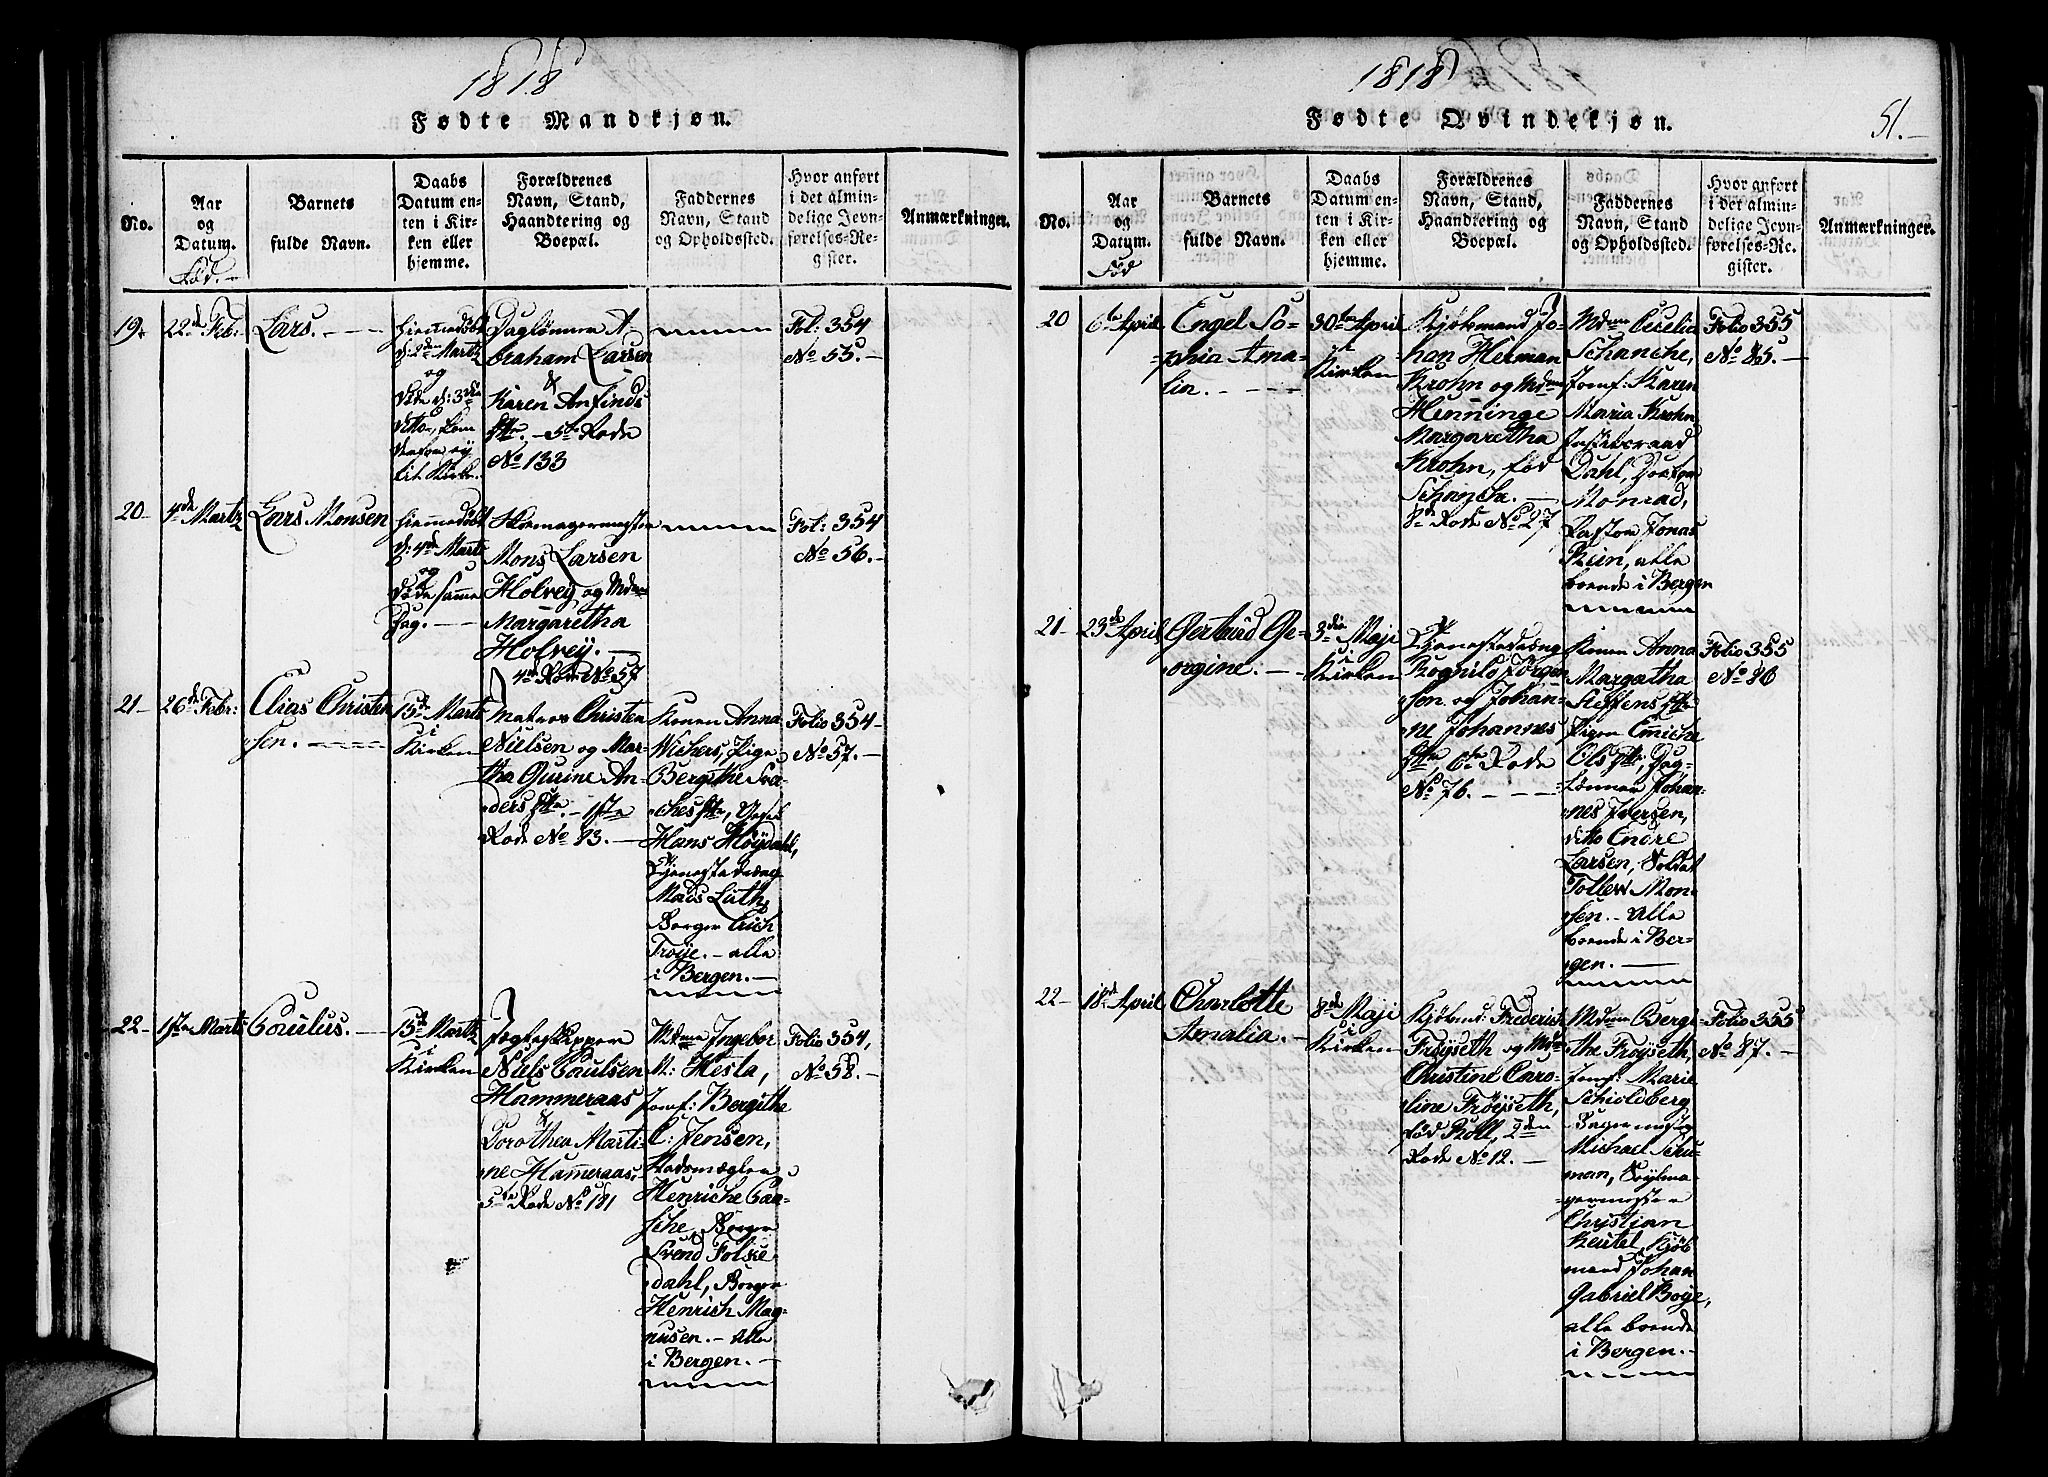 1818
Fødte Mandkjøn.
No.
Aar
og
Datum.
Fød.-
Barnets
fulde Navn.
Daabs
Datum en-
ten i Kir-
ken eller
hjemme.
Forældrenes
Navn, Stand,
Haandtering og
Boepæl.
Faddernes
Navn, Stand
og Opholdssted.
Hvor anført
i det almin-
delige Jevn-
førelses-Re-
gister.
Anmærkninger.
19.
22de Febr.
Lars.
hiemmedøbt
d: 2den Martz
og
døde d: 3die
ditto, kom
til Kirke.
Daglønner A-
braham Larsen
&
Karen Anfinds
dtr. - 5te Rode
No 133
Fol: 354
No 55.-
20-
4de Martz
Lars Monsen
hiemmedøbt
d: 4de Martz
og
døde samme
Dag.
Skomagermester
Mons Larsen
Holvey og Mdme
Margaretha
Holvey.
4de Rode No 57
Fol: 354
No 56.-
21-
26de Febr:
Elias Christen
sen.
15de Martz
i
Kirken
Matros Christen
Nielsen og Mar-
tha Gurine An-
ders dtr. - 1ste
Rode No 93.
Konen Anna
Wichers, Pige
Bergithe
Hans Høydahl,
Tjenestedreng
Mads Luth,
Borger Erich
Trøye. - alle
i Bergen.
Folio 354-
No 57.-
22-
1ste Martz
Poulus.
15de Martz
i
Kirken
Jægteskipper
Niels Poulsen
Hammeraas
&
Dorothea Marti-
ne Hameraas.
5te Rode No 191
Mdme Ingebor
M: Hesla,
Jomf: Bergithe
C: Jensen,
Stadsmægler
Henriche
Borger
Svend Folke
Dahl, Borger
Henrich Mag-
nusen. - alle
i Bergen.
Folio 354,
No 58.-
1818
Fødte Qvindekjøn.
51.-
No.
Aar
og
Datum.
Fød
Barnets
fulde Navn.
Daabs
Datum en-
ten i Kir-
ken eller
hjemme.
Forældrenes
Navn, Stand,
Haandtering og
Boepæl.
Faddernes
Navn, Stand
og Opholdssted.
Hvor anført
i det almin-
delige Jevn-
førelses-Re-
gister.
Anmærkninger.
20
6te April
Engel So-
phia Ama-
lia.
30te April
i
Kirken
Kjøbmand Jo-
han Herman
Krohn og Mdme
Henninge
Margaretha
Krohn, fød
Schanche.
8de Rode No 27
Mdme Cecelia
Schanche,
Jomf: Karen
Maria Krohn
Justitsraad
Dahl, Doctor
Monrad,
Pastor Jonas
Rein, alle
boende i Bergen
Folio 355
No 85.-
21-
23de April
Gertrud Ge-
orgine.
3die Maji
i
Kirken
Tjenestedreng
Rognild Jørgen
sen og Johan-
ne Johannes
dtr, 6te Rode
No 76.
Konen Anna
Margatha
Steffens dtr
Pigen Emiche
Ols dtr, Dag-
lønner Johan-
nes Iversen,
ditto Endre
Larsen, Soldat
Tollew Mon-
sen. - alle
boende i Ber-
gen.
Folio 355
No 86
22-
18de April
Charlotte
Amalia.
8de Maji
i
Kirken
Kjøbmd: Frederich
Frøyseth og Mdme
Christine Caro-
line Frøyseth,
fød Roll, 2den
Rode No 12.
Mdme Bergi-
tha Frøyseth,
Jomf: Marie
Schioldberg
Bagermester
Michael Schu-
man, Seylma-
germester
Christian
Reutel, Kjøb
mand Johan
Gabriel Boye,
alle boende
i Bergen.
Folio 355
No 87.-